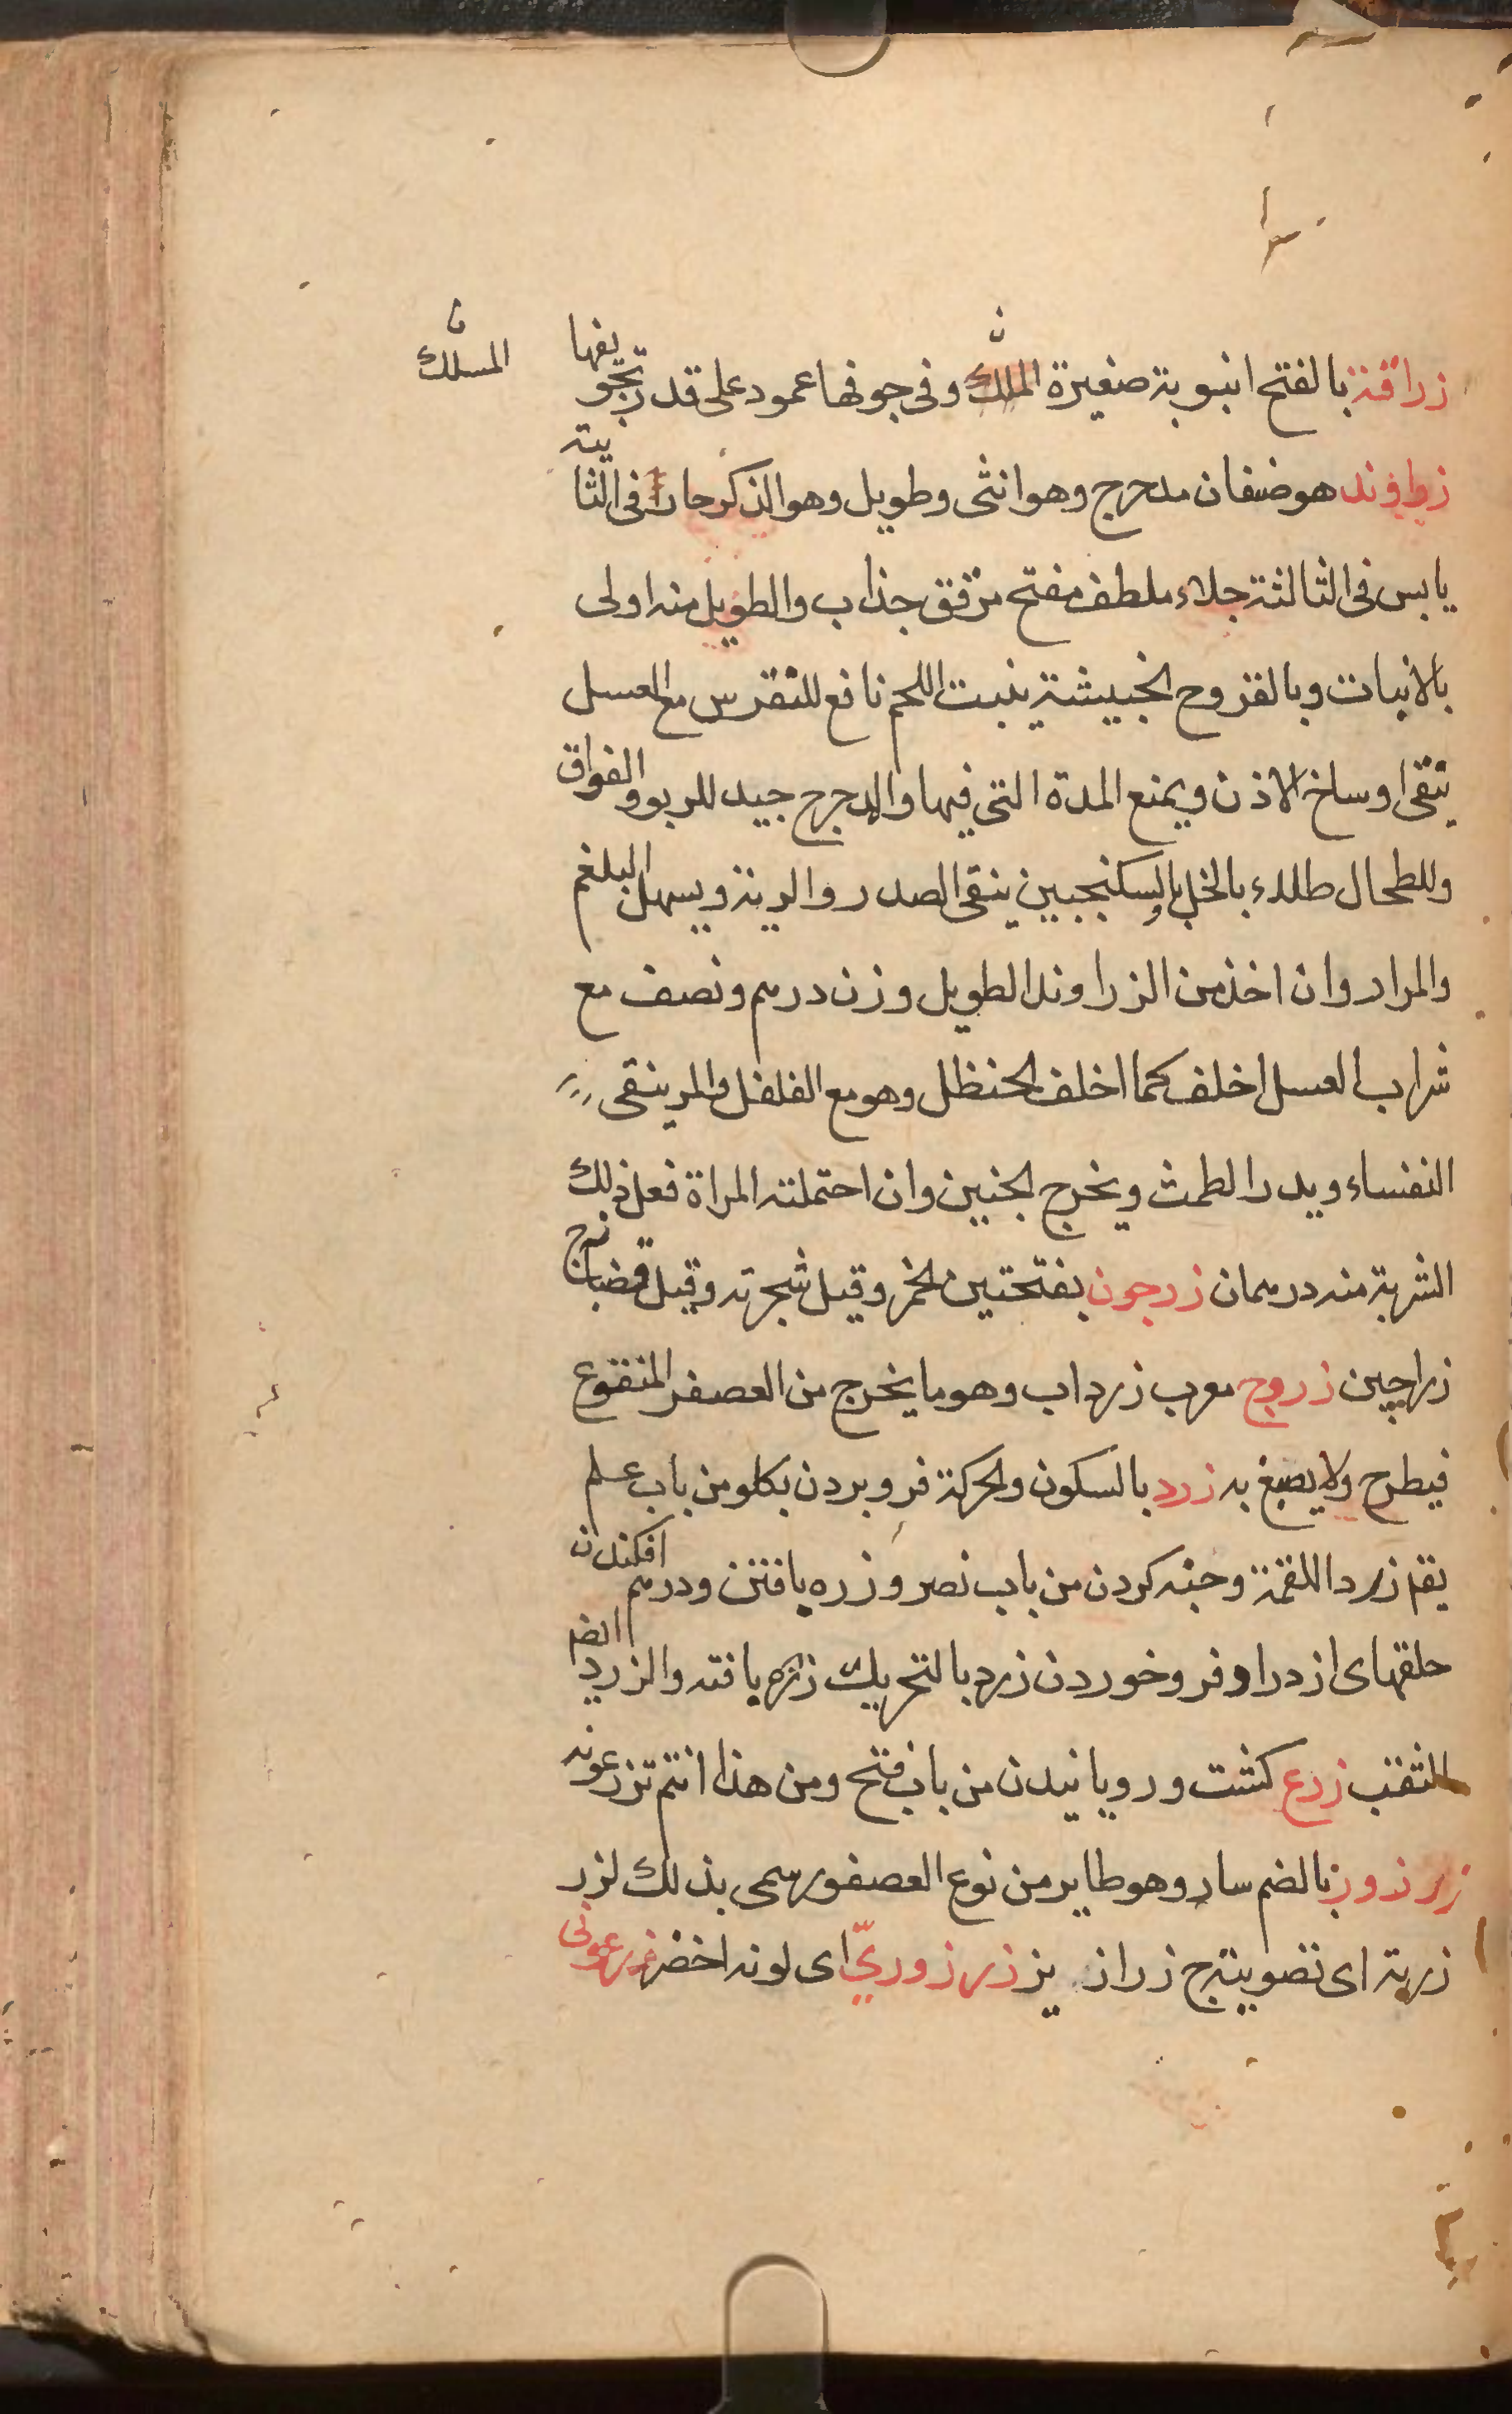 المسلك
زراقة بالفتح انبوبة صغيرة الملك وفى جوفها عمود على قدر تجويفها
زراوند هو ضفان مدحرج وهو انثى وطويل وهو الذكر حار فى الثانية
يابس فى الثالثة جلاء ملطف مفتح مرقق جذاب والطويل منه اولى
بالانبات وبالقروح الخبيثة ينبت اللحم نافع للنقرس مع العسل
ينقى اوساخ الاذن ويمنع المدة التى فيها والمدحرج جيد للربو والفواق
وللطحال طلاء بالخل بالسكنجبين ينقى الصدر والرية ويسهل البلغم
والمرار وان اخذ من الزراوند الطويل وزن درهم ونصف مع
شراب العسل اخلف كما اخلف الحنظل وهو مع الفلفل والمر ينقى
النفساء ويدر الطمث ويخرج الجنين وان احتملته المراة فعل ذلك
الشربة منه درهمان زرجون بفتحتين الخمر وقيل شجرته وقيل قضبانه ج
زراجين زروج معرب زرداب وهو ما يخرج من العصفر المنقوع
فيطرح ولا يصبغ به زرد بالسكون والحركة فرو بردن بكلو من باب علم
يقم زرد اللقمة وخبه كردن من باب نصر وزره بافتن ودرهم افكندن
حلقهاى ازدرا و فرو خوردن زرد بالتحريك زره بافته والزرد ايضا
الثقب زرع كشت و رويانيدن من باب فتح ومن هذا انتم تزرعونه
زرزور بالضم سار وهو طاير من نوع العصفور سمى بذلك لزر
زرته اى تصويته ج زراز يز زرزورىّ اى لونه اخضر فرعونى